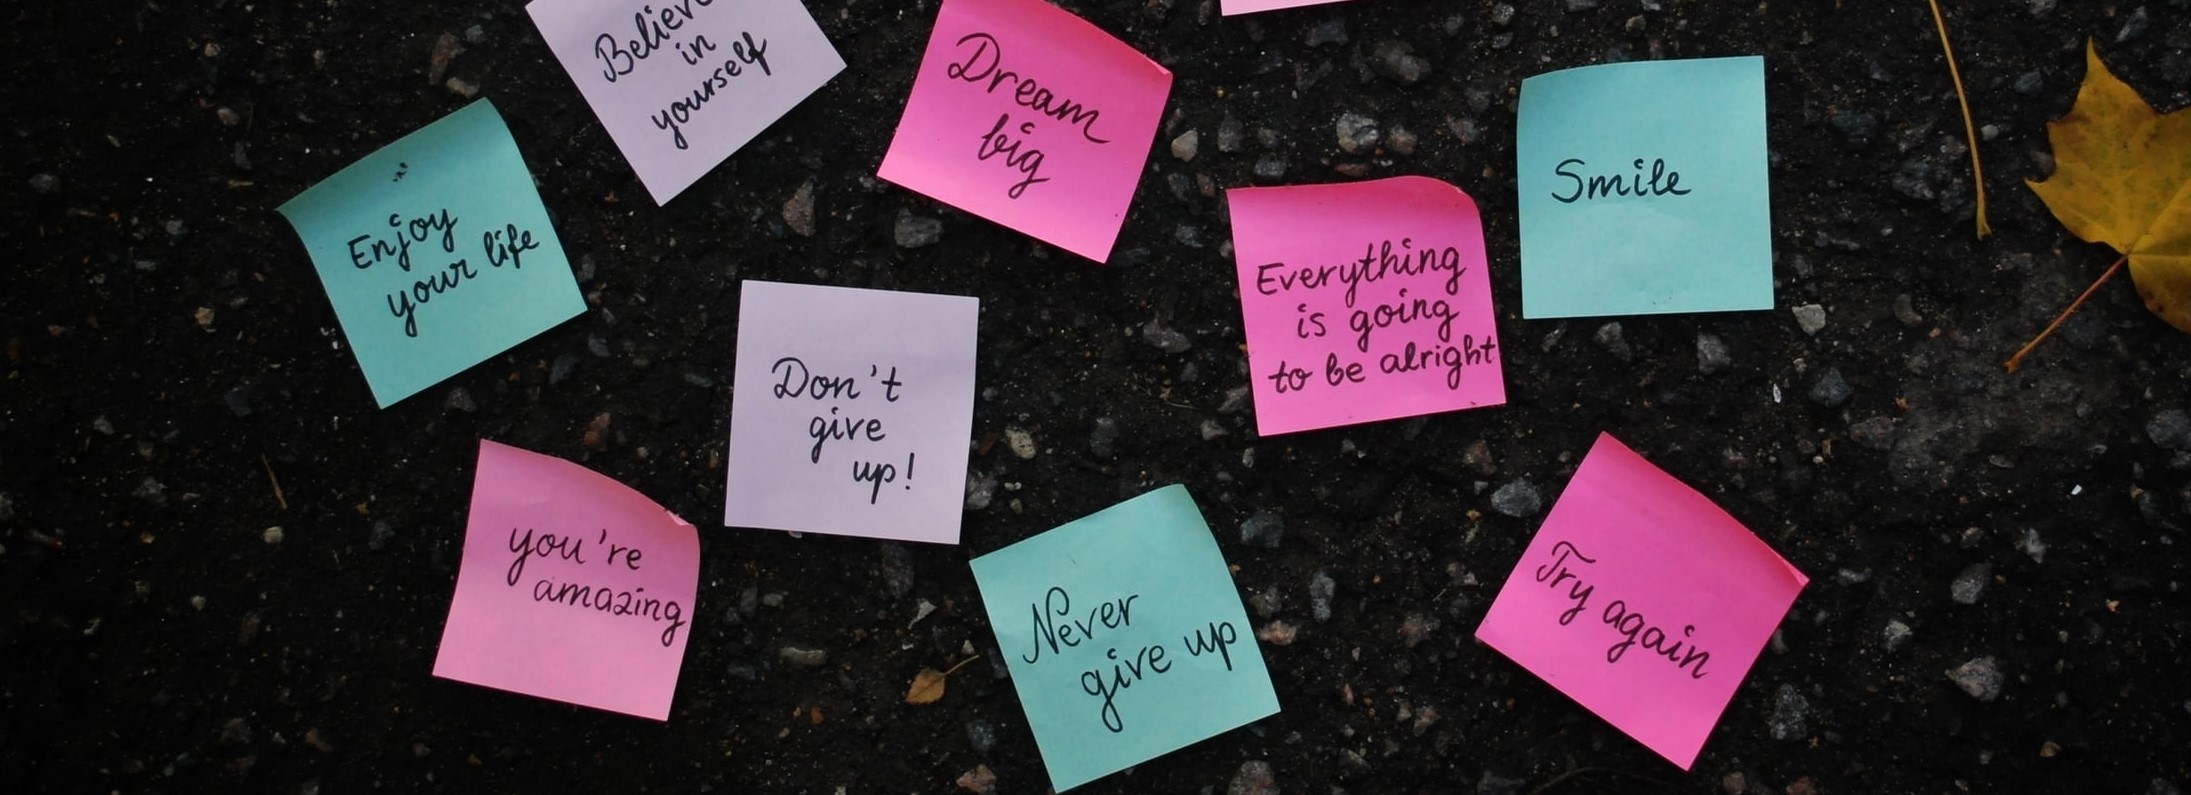 Believe
in
yourself
Dream
big
Smile
Enjoy
your life
Everything
is going
to be alright
Don't
give
up!
you're
amazing
Never
give up
Try again